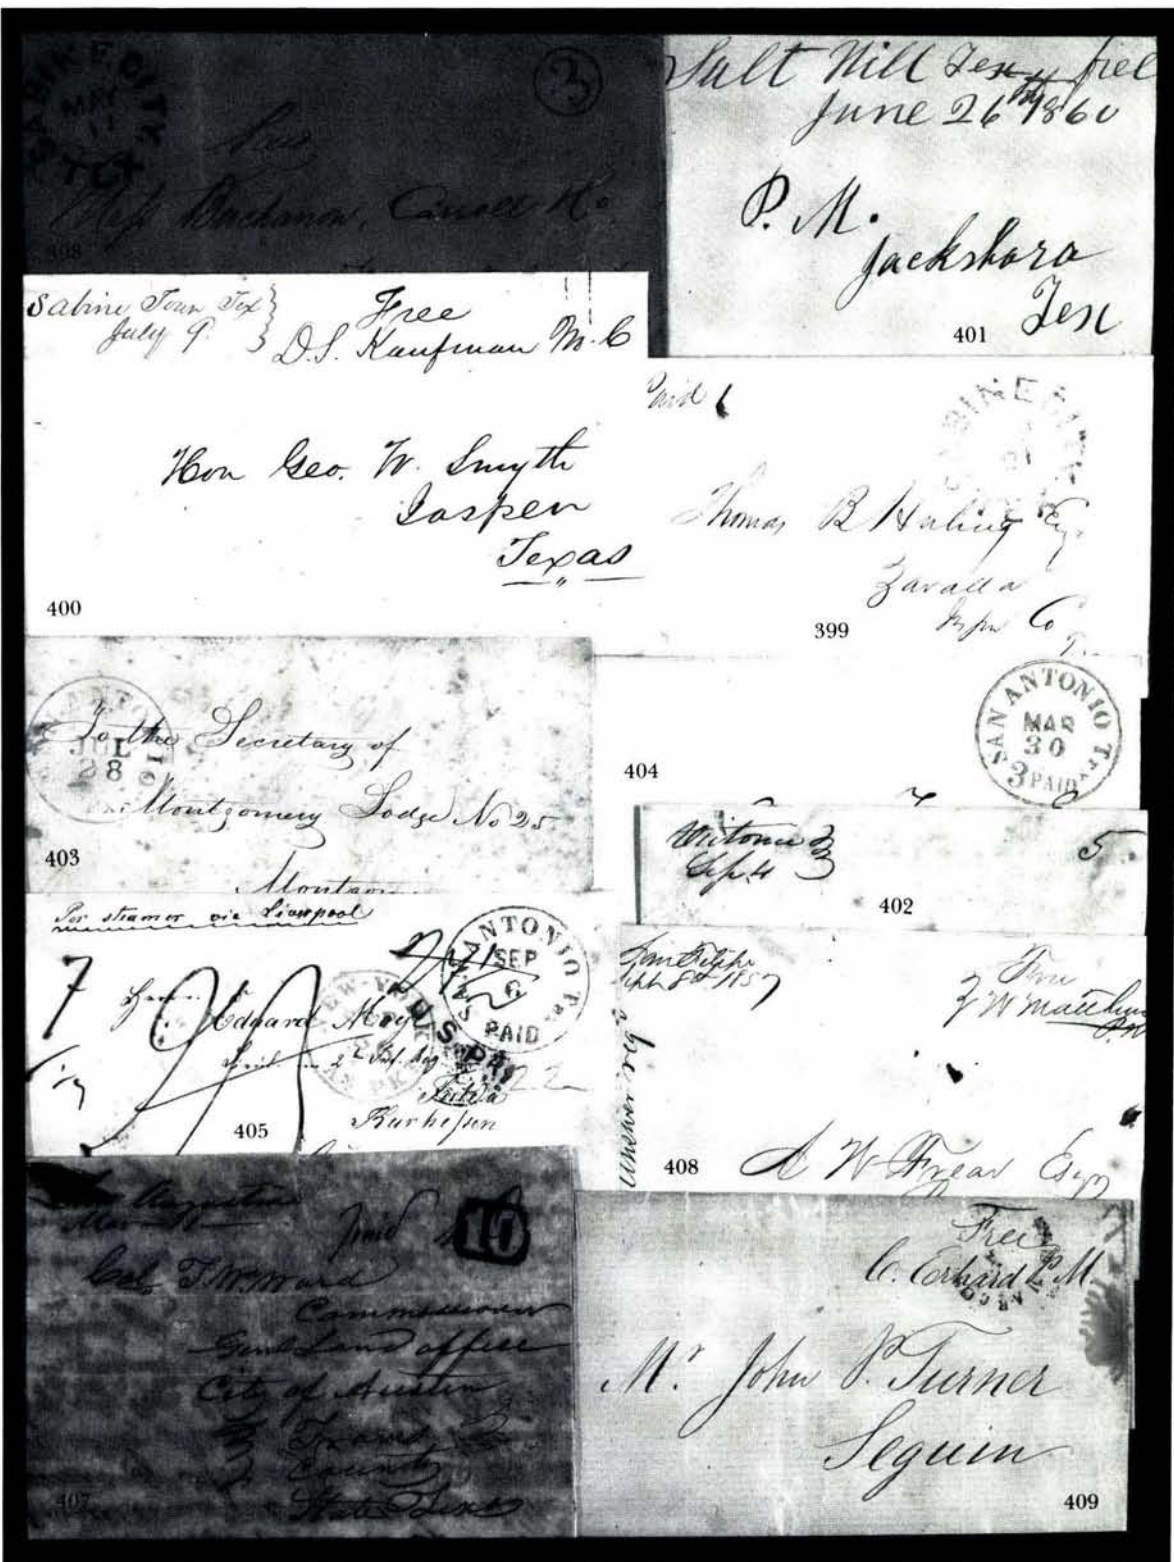 SABINE CITY
MAY
11
TEX
3
Miss Buchanan, Carroll Co
398
Salt Hill Tex
June 26th 1860
P. M.
Jacksboro
Tex
401
Sabine Town Tex
July 9
Free
D.S. Kaufman M.C
Hon Geo. W. Smyth
Jasper
Texas
400
Paid
SABINE CITY
Thomas B Huling Esq
Zavalla
Co
399
SAN ANTONIO
JUL
28
To the Secretary of
Montgomery Lodge No 25
403
SAN ANTONIO Tex
MAR
30
3 PAID
404
Sep 4
5
402
Per steamer via Liverpool
7
SAN ANTONIO Tex
SEP
6
PAID
NEW-YORK
AM. PKT
U.S. PKT
22
Edward
Fulda
Kurhessen
405
San Felipe
Sept 8th 1857
Free
Z W Matthews
P.M
Answer
A W Frear Esqr
408
San Augustine
Paid
10
Col T. W. Ward
Commissioner
Genl Land office
City of Austin
Travis
County
State Texas
407
Free
C. Erhard P. M
Mr John P. Turner
Seguin
409